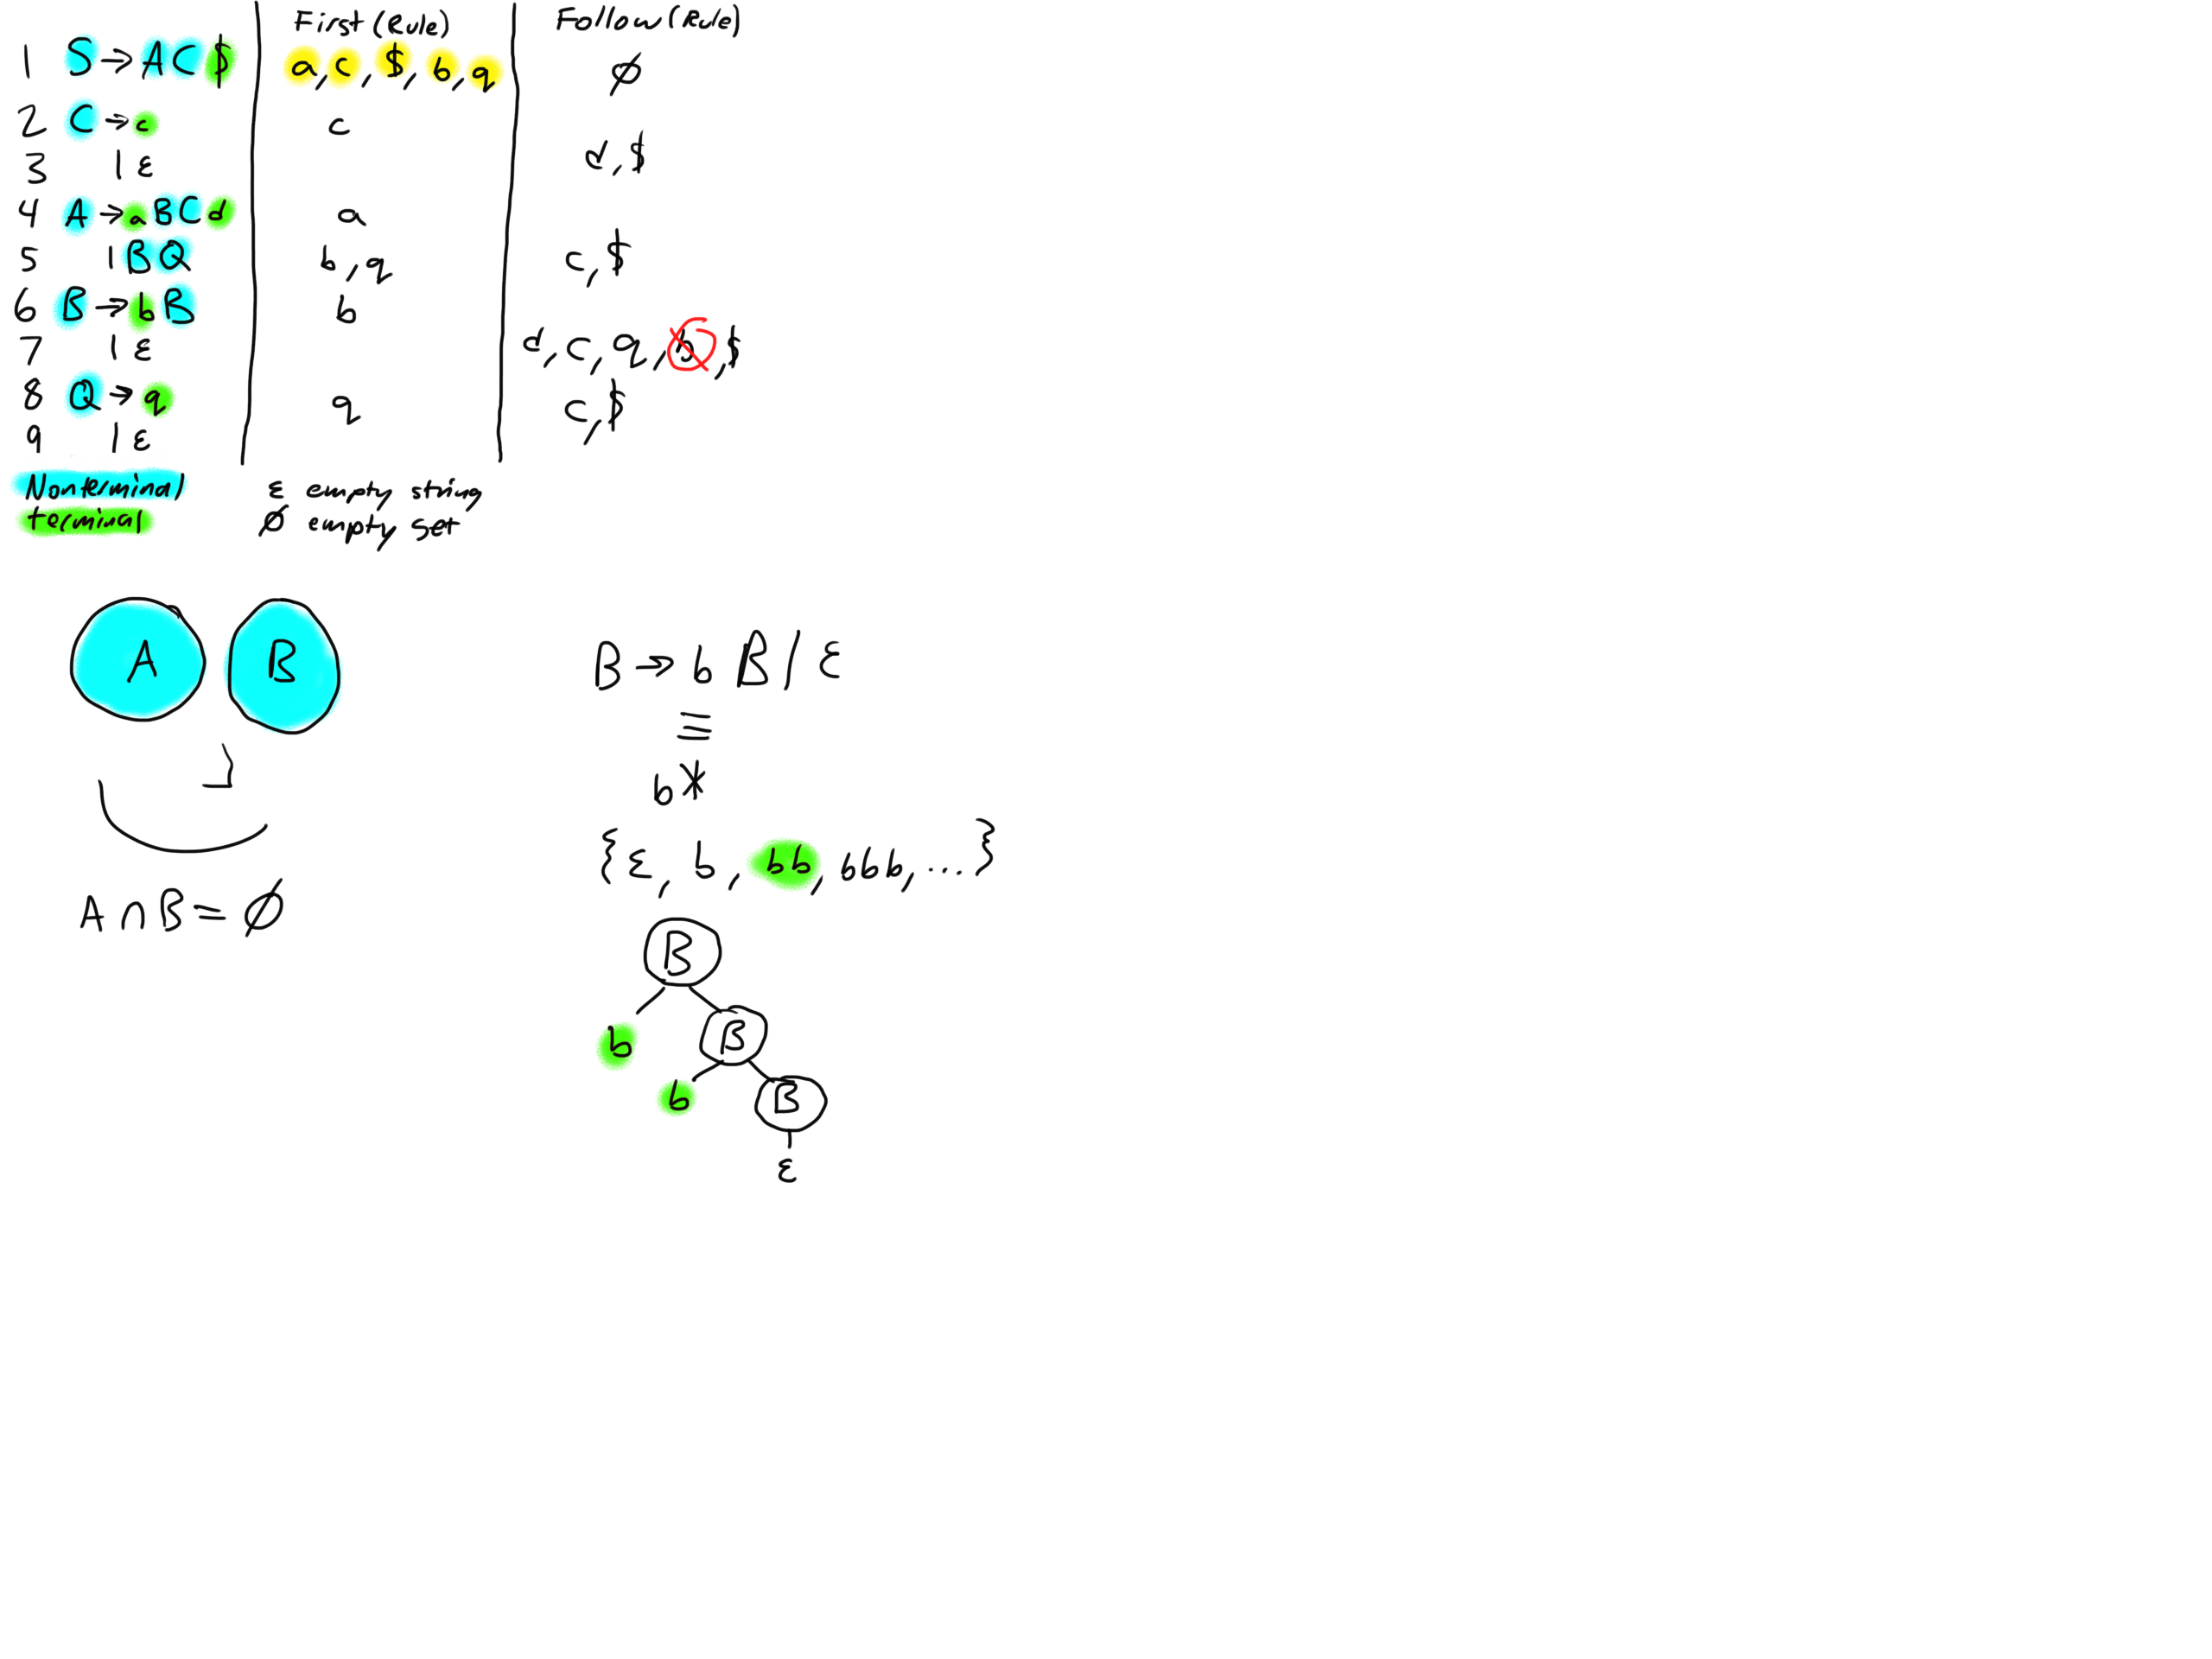 First (Rule) Follow (Rule)
1 S → A C $ a, c, $, b, q ∅
2 C → c c
3 | ε d, $
4 A → a B C d a
5 | B Q b, q c, $
6 B → b B b
7 | ε d, c, q, b, $
8 Q → q q c, $
9 | ε
Nonterminal ε empty string
terminal ∅ empty set
A B
A ∩ B = ∅
B → b B | ε
≡
b*
{ ε, b, bb, bbb, ... }
B
b B
b B
ε